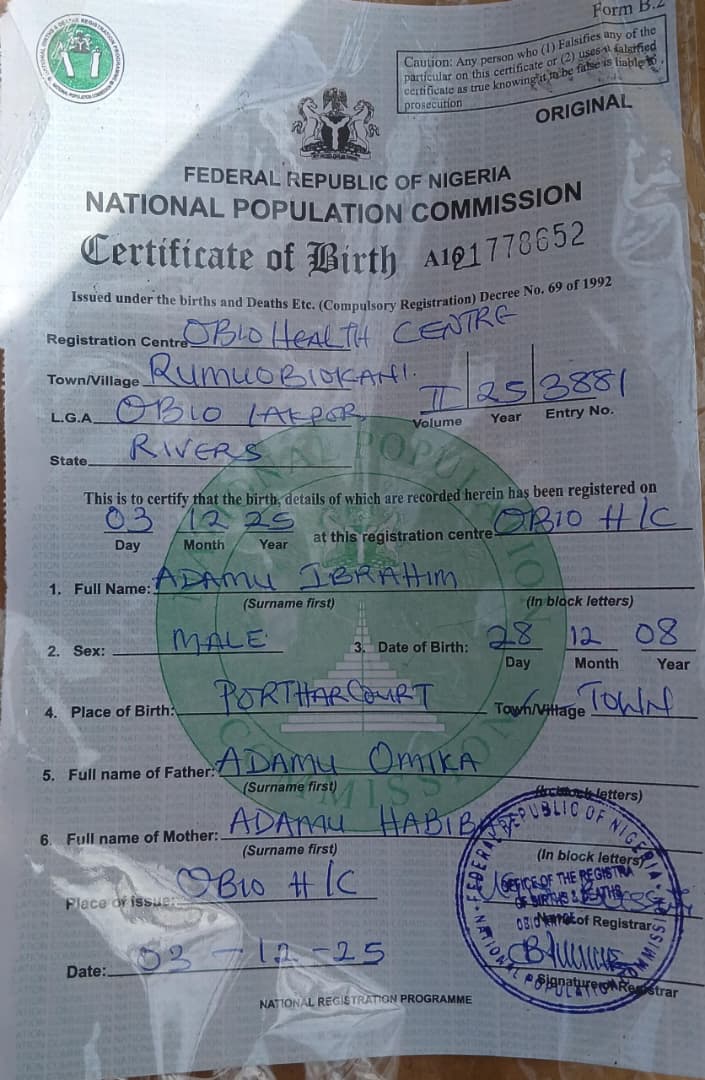 Form B.2
Caution: Any person who (1) Falsifies any of the
particular on this certificate or (2) uses a falsified
certificate as true knowing it to be false is liable to
prosecution
ORIGINAL
FEDERAL REPUBLIC OF NIGERIA
NATIONAL POPULATION COMMISSION
Certificate of Birth A101778652
Issued under the births and Deaths Etc. (Compulsory Registration) Decree No. 69 of 1992
Registration Centre OBIO HEALTH CENTRE
Town/Village RUMUOBIOKANI.
II 25 3881
L.G.A OBIO IAKPOR
Volume Year Entry No.
State RIVERS
This is to certify that the birth, details of which are recorded herein has been registered on
03 12 25 at this registration centre OBIO H/C
Day Month Year
1. Full Name: ADAMU IBRAHIM
(Surname first) (In block letters)
2. Sex: MALE 3. Date of Birth: 28 12 08
Day Month Year
4. Place of Birth: PORTHARCOURT Town/Village TOWN
5. Full name of Father: ADAMU OMIKA
(Surname first) (In block letters)
6. Full name of Mother: ADAMU HABIBA
(Surname first) (In block letters)
Place of issue: OBIO H/C
Name of Registrar
Date: 03-12-25
Signature of Registrar
NATIONAL REGISTRATION PROGRAMME
FEDERAL REPUBLIC OF NIGERIA
OFFICE OF THE REGISTRA
OF BIRTHS & DEATHS
NATIONAL POPULATION COMMISSION
NATIONAL POPULATION
COMMISSION